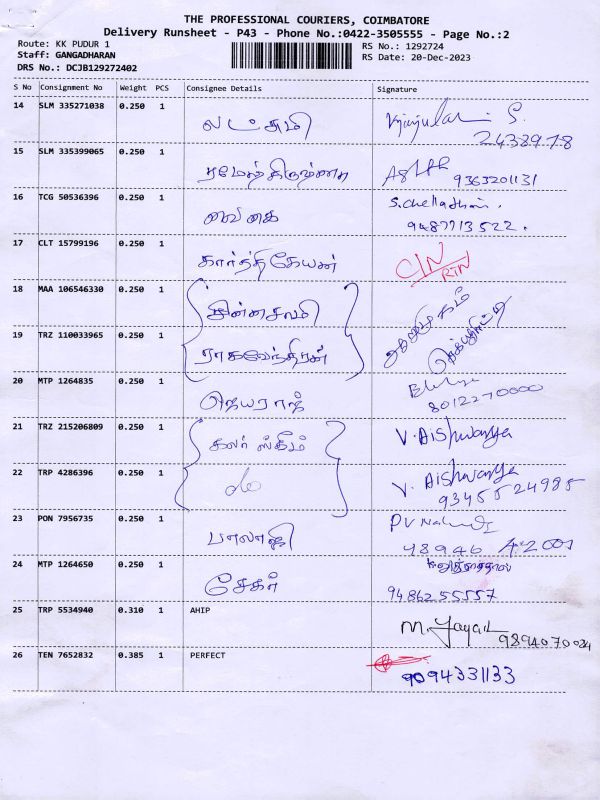 THE PROFESSIONAL COURIERS, COIMBATORE
Delivery Runsheet - P43 - Phone No.:0422-3505555 - Page No.:2
Route: KK PUDUR 1
RS No.: 1292724
Staff: GANGADHARAN
RS Date: 20-Dec-2023
DRS No.: DCJB129272402
S No Consignment No Weight PCS Consignee Details Signature
14 SLM 335271038 0.250 1 லட்சுமி S.
24389978
15 SLM 335399065 0.250 1
9363201131
16 TCG 50536396 0.250 1 வைகை S.Chelladhurai.
9487713522.
17 CLT 15799196 0.250 1 கார்த்திகேயன் CIN
RTN
18 MAA 106546330 0.250 1 சின்னசாமி
19 TRZ 110033965 0.250 1 ராகவேந்திரன்
20 MTP 1264835 0.250 1 ஜெயராஜ்
8012270000
21 TRZ 215206809 0.250 1 கலர் ஸ்கீம் V. Aishwarya
22 TRP 4286396 0.250 1 do V. Aishwarya
9345524985
23 PON 7956735 0.250 1 பாலாஜி
48946 A:2001
24 MTP 1264650 0.250 1 சேகர்
9486255557
25 TRP 5534940 0.310 1 AHIP M. Jayan
9894070024
26 TEN 7652832 0.385 1 PERFECT
9094331133